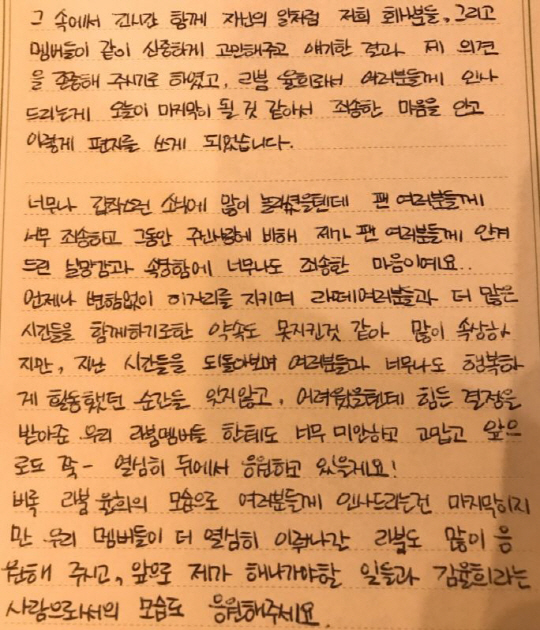 그 속에서 긴시간 함께 자신의 일처럼 저희 회사분들, 그리고
멤버들이 같이 신중하게 고민해주고 얘기한 결과 제 의견
을 존중해 주시기로 하였고, 라붐 율희로서 여러분들께 인사
드리는게 오늘이 마지막이 될 것 같아서 죄송한 마음을 안고
이렇게 편지를 쓰게 되었습니다.
너무나 갑작스런 소식에 많이 놀라셨을텐데 팬 여러분들께
너무 죄송하고 그동안 주신사랑에 비해 제가 팬 여러분들께 안겨
드린 실망감과 속상함에 너무나도 죄송한 마음이에요..
언제나 변함없이 이자리를 지키며 라떼여러분들과 더 많은
시간들을 함께하기로한 약속도 못지킨것 같아 많이 속상하
지만, 지난 시간들을 되돌아보며 여러분들과 너무나도 행복하
게 활동했던 순간들 잊지않고, 어려웠을텐데 힘든 결정을
받아준 우리 라붐멤버들 한테도 너무 미안하고 고맙고 앞으
로도 쭉- 열심히 뒤에서 응원하고 있을게요!
비록 라붐 율희의 모습으로 여러분들께 인사드리는건 마지막이지
만 우리 멤버들이 더 열심히 이뤄나간 라붐도 많이 응
원해 주시고, 앞으로 제가 해나가야할 일들과 김율희라는
사람으로서의 모습도 응원해주세요.